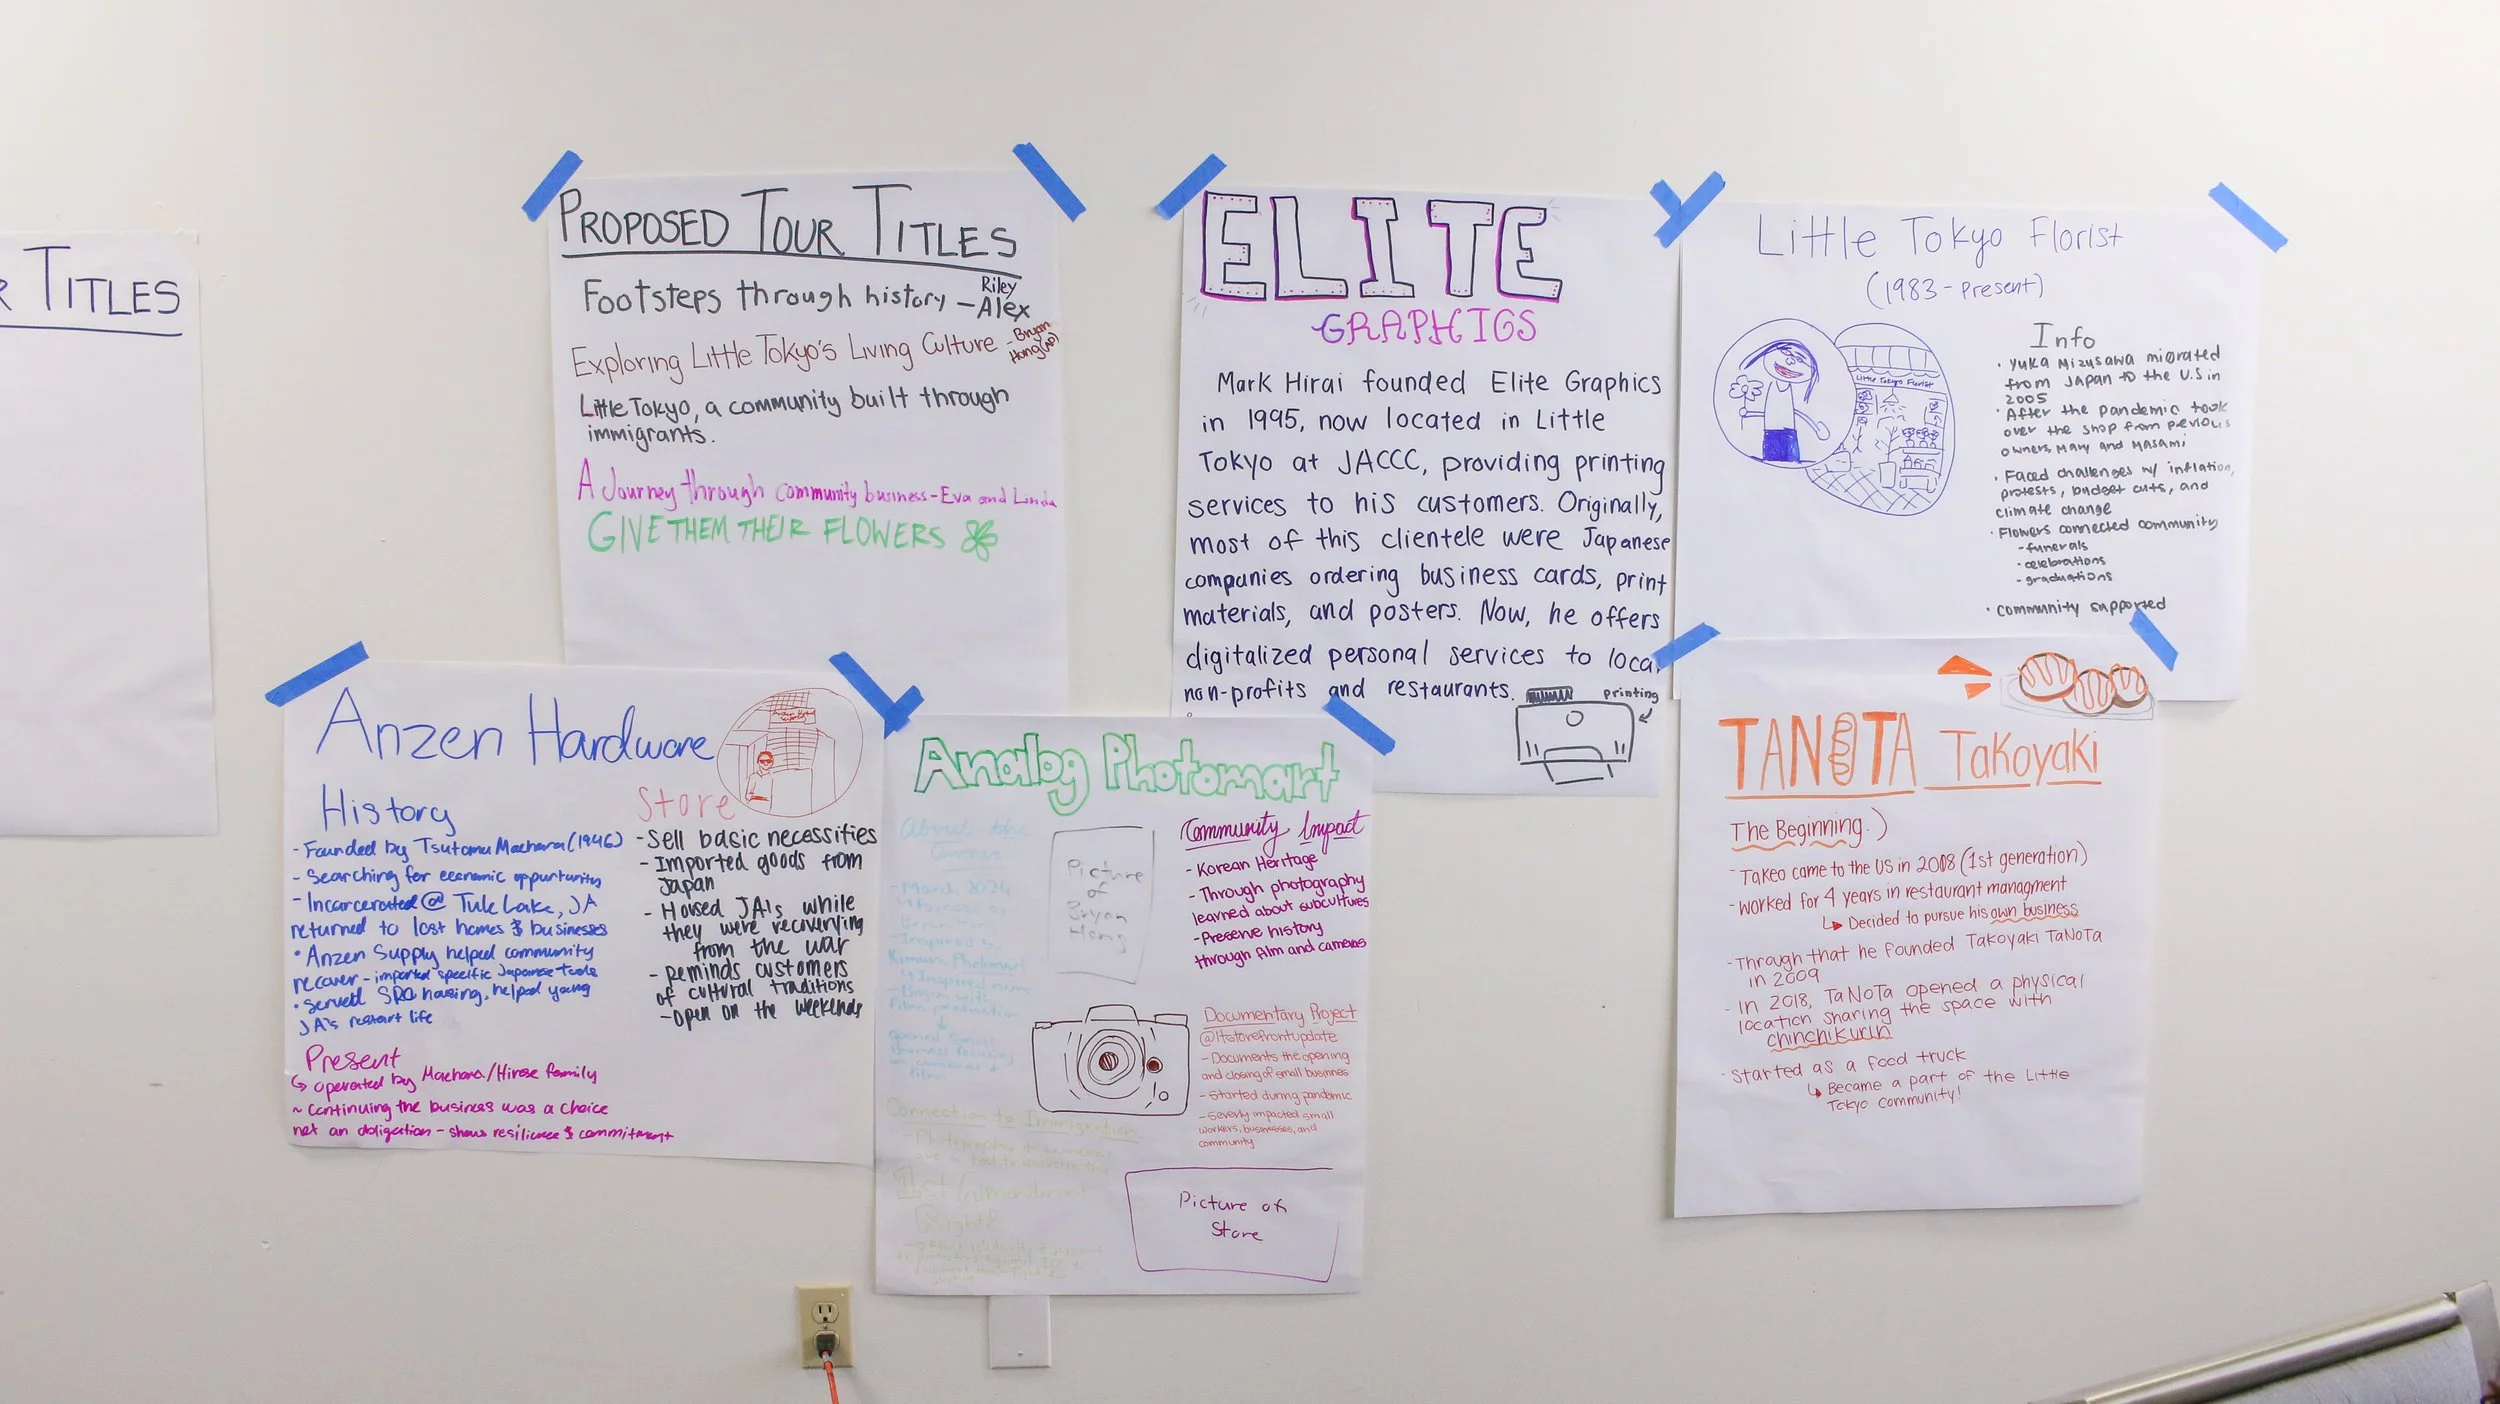 TITLES
PROPOSED TOUR TITLES
Footsteps through history - Riley
Alex
Exploring Little Tokyo's Living Culture - Bryan
Hong
Little Tokyo, a community built through
immigrants.
A Journey through community business - Eva and Linda
GIVE THEM THEIR FLOWERS
ELITE
GRAPHICS
Mark Hirai founded Elite Graphics
in 1995, now located in Little
Tokyo at JACCC, providing printing
services to his customers. Originally,
most of this clientele were Japanese
companies ordering business cards, print
materials, and posters. Now, he offers
digitalized personal services to local
non-profits and restaurants.
printing
Little Tokyo Florist
(1983 - present)
Little Tokyo Florist
Info
• Yuka Mizusawa migrated
from Japan to the U.S in
2005
• After the pandemic took
over the shop from previous
owners, Mary and Masami
• Faced challenges w/ inflation,
protests, budget cuts, and
climate change
• Flowers connected community
- funerals
- celebrations
- graduations
• community supported
Anzen Hardware
History
- Founded by Tsutomu Maehara (1946)
- Searching for economic oppurtunity
- Incarcerated @ Tule Lake, JA
returned to lost homes & businesses
• Anzen Supply helped community
recover - imported specific Japanese tools
• served SRO housing, helped young
JA's restart life
Present
↳ operated by Maehara/Hirose family
~ Continuing the business was a choice
not an obligation - shows resilience & commitment
Store
- Sell basic necessities
- Imported goods from
Japan
- Housed JA's while
they were recoverying
from the war
- Reminds customers
of cultural traditions
- open on the weekends
Analog Photomart
About the
Owner
Picture
of
Bryan
Hong
- March 2024
Connection to Immigration:
1st Amendment
Rights
Community Impact
- Korean Heritage
- Through photography
learned about subcultures
- Preserve history
through film and cameras
Documentary Project
@ltstorefrontupdate
- Documents the opening
and closing of small businnes
- Started during pandemic
- Severly impacted small
workers, businesses, and
community
Picture of
Store
TANOTA Takoyaki
The Beginning.)
- Takeo came to the US in 2008 (1st generation)
- worked for 4 years in restaurant managment
↳ Decided to pursue his own business
- Through that he founded Takoyaki TaNoTa
in 2009
- In 2018, TaNoTa opened a physical
location sharing the space with
chinchikurin
- Started as a food truck
↳ Became a part of the Little
Tokyo community!